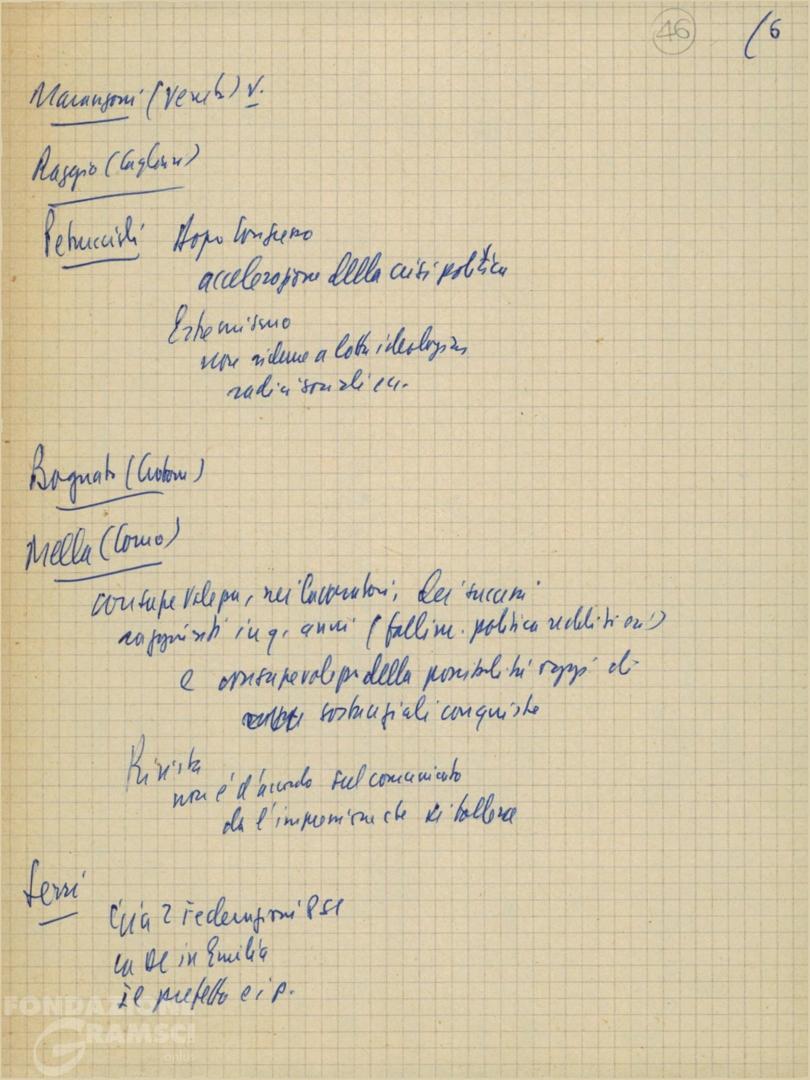 46
(6
Marangoni (Veneto) v.
Raggio (Cagliari)
Petruccioli Dopo Congresso
accelerazione della crisi politica
Estremismo
non ridurre a lotta ideologica
Bagnato (Crotone)
Mella (Como)
consapevolezza, nei lavoratori, dei successi
raggiunti in q. anni (fallim. politica
e consapevolezza della possibilità oggi di
sostanziali conquiste
Rivista
non è d'accordo sul comunicato
dà l'impressione che si tollera
Serri
2 Federazioni PSI
la DC in Emilia
il prefetto e i p.
FONDAZIONE
GRAMSCI
onlus